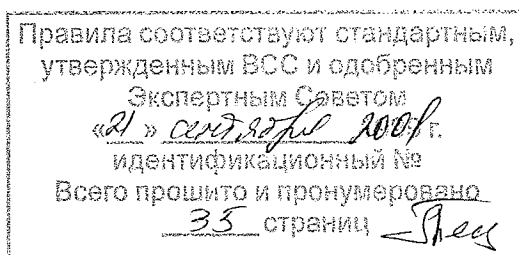 Правила соответствуют стандартным,
утвержденным ВСС и одобренным
Экспертным Советом
«21» сентября 2001 г.
идентификационный №
Всего прошито и пронумеровано
35 страниц